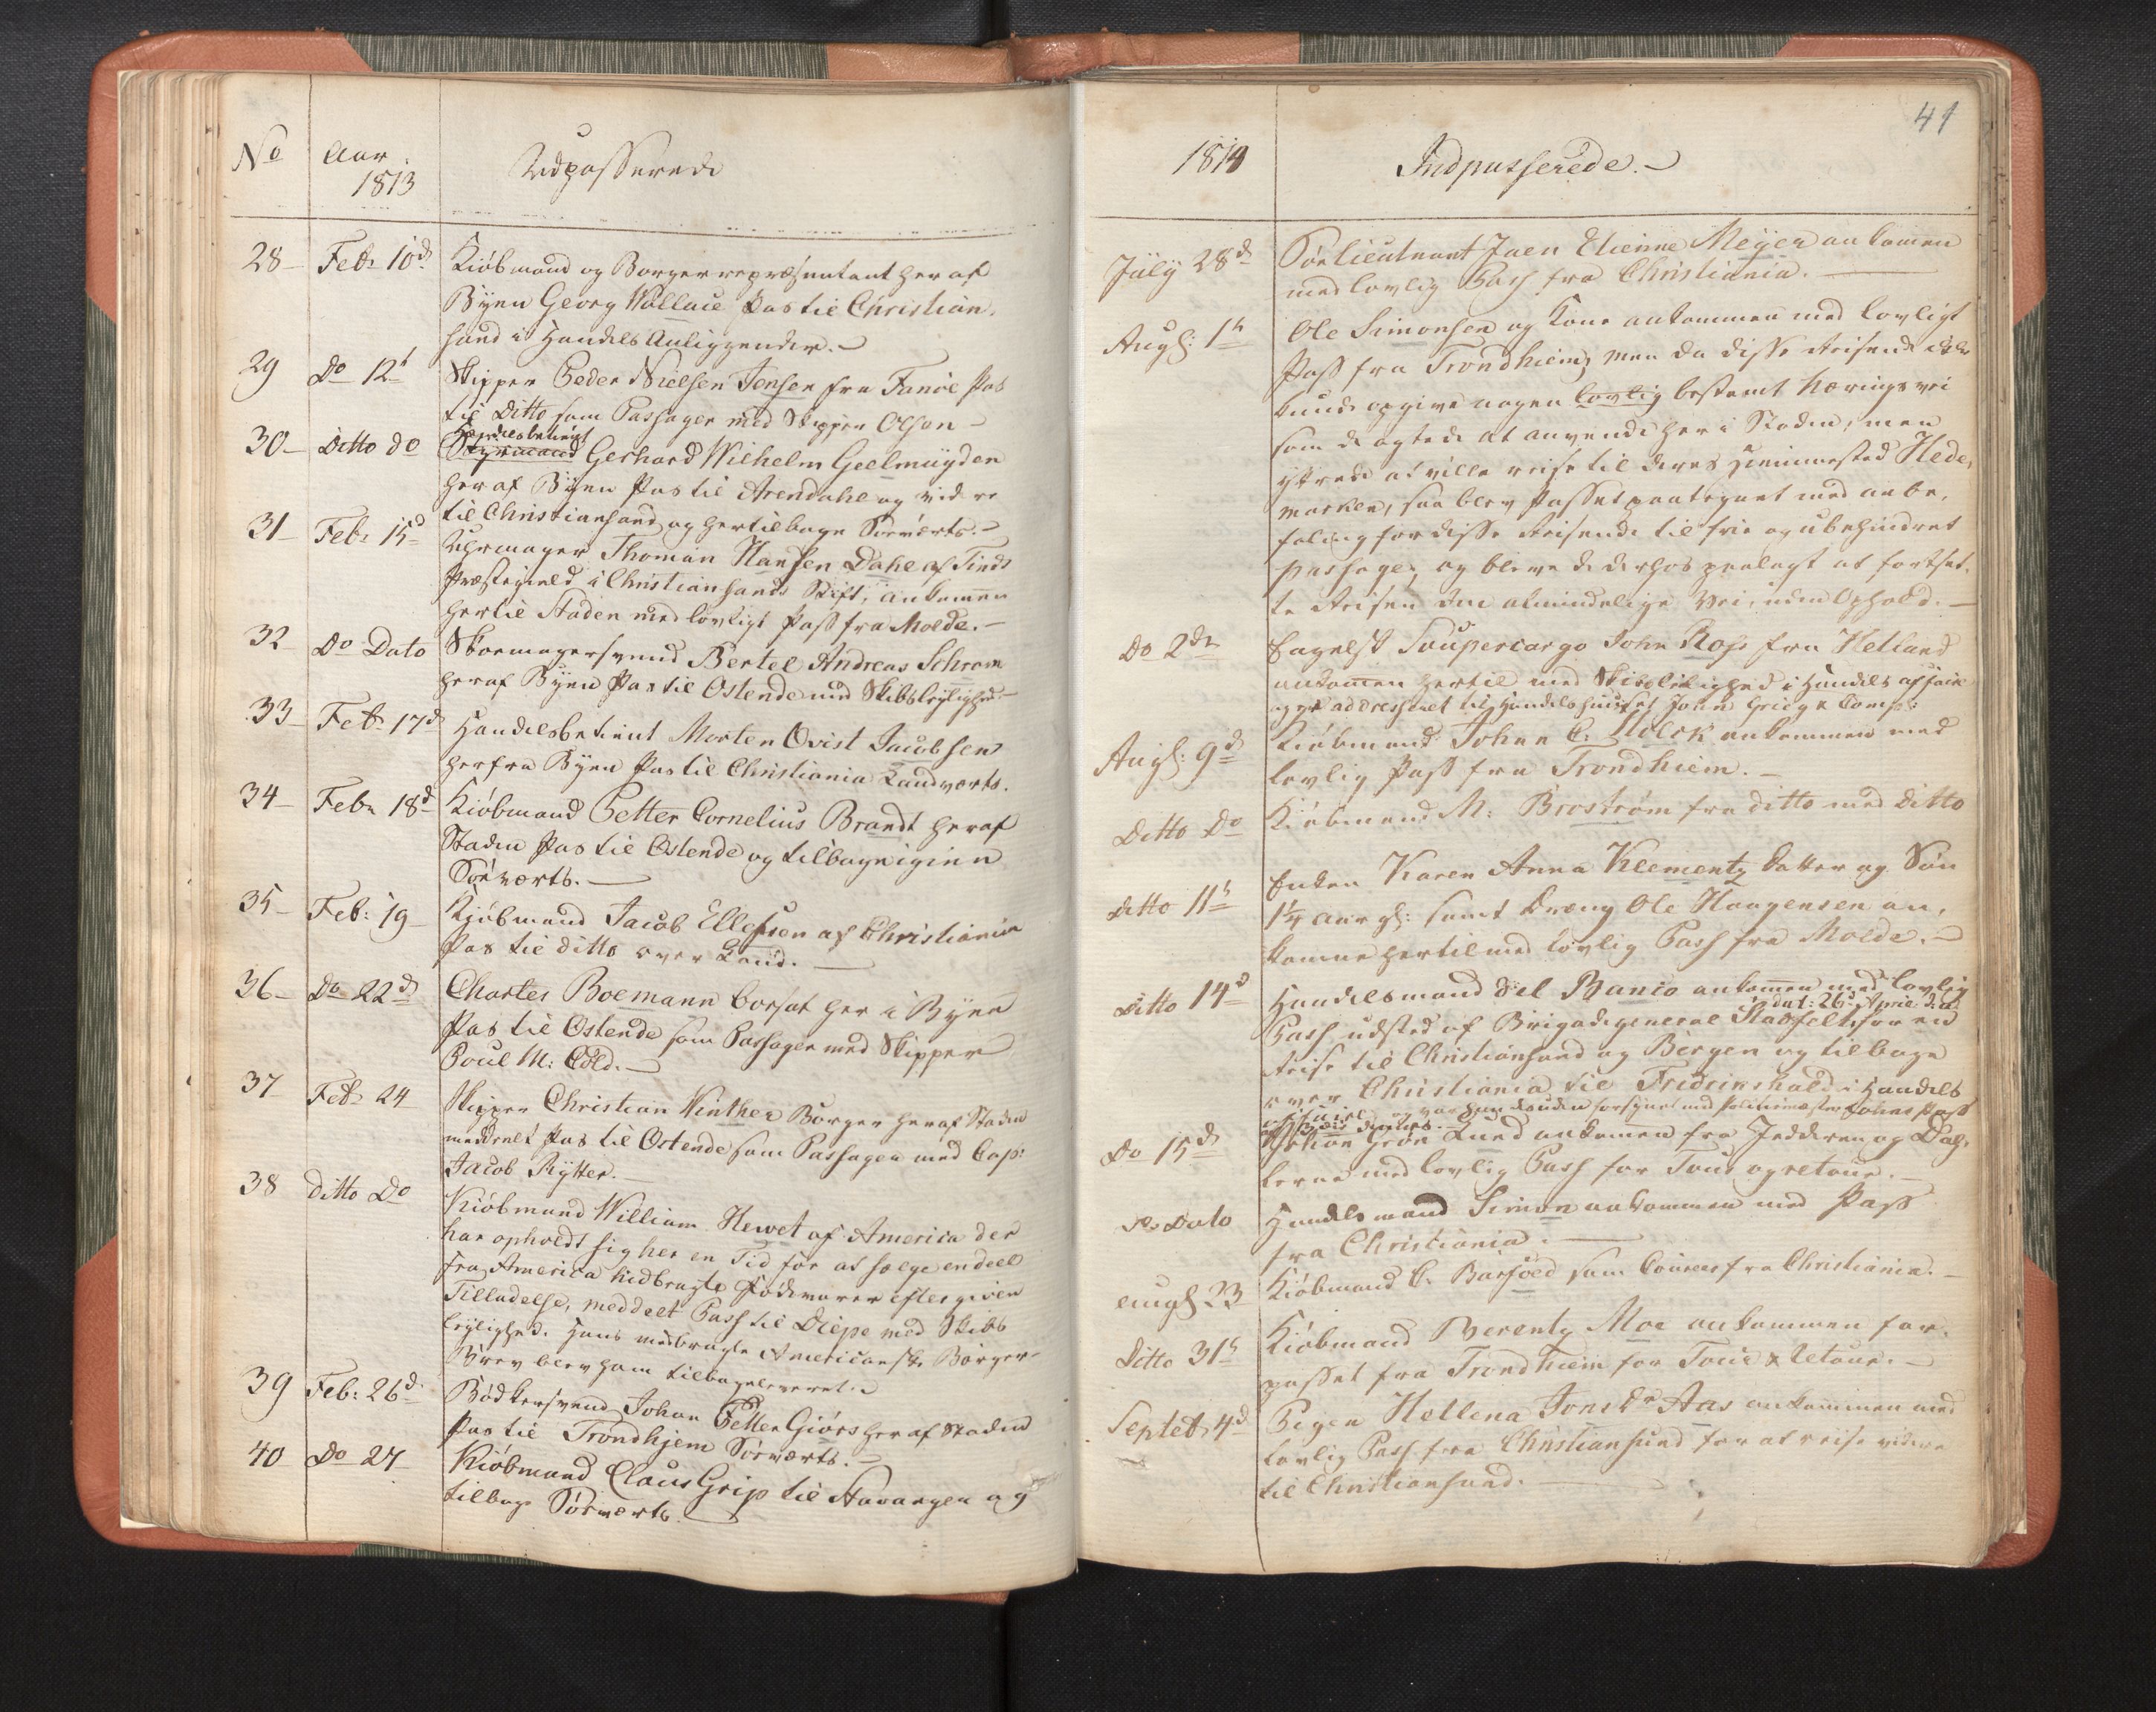 No
Aar
1813
Udpasserede
28 Feb: 10d Kiøbmand og Borgerrepræsentant her af
Byen Georg Wallace Pas til Christian-
sand i Handels Anliggender.
29 Do 12t Skipper Peder Nielsen Jensen fra Fanøe Pas
til Ditto som Passager med Skipper Olsen
30 Ditto do Handelsbetient
Styrmand Gerhard Wilhelm Geelmuyden
her af Byen Pas til Arendahl og videre
til Christiansand og her tilbage Søeværts.
31 Feb: 15d Uhrmager Thoman Hansen Dahl af Tinds
Præstegield i Christiansands Stift, ankommen
hertil Staden med lovligt Pass fra Molde.
32 Do Dato Skoemagersvend Bertel Andreas Schram
heraf Byen Pas til Ostende med Skibsleylighed
33 Feb 17d Handelsbetient Morten Qvist Jacobsen
her fra Byen Pas til Christiania Landværts.
34 Feb: 18d Kiøbmand Petter Cornelius Brandt heraf
Staden Pas til Ostende og tilbage igien
Søeværts.
35 Feb: 19 Kjøbmand Jacob Ellefsen af Christiania
Pas til ditto over Land.
36 Do 22d Charles Boemann borsat her i Byen
Pas til Ostende som Passager med Skipper
Poul M: Cold.
37 Feb 24 Skipper Christian Winther Borger heraf Staden
meddeelt Pas til Ostende som Passager med Cap:
Jacob Rytter.
38 ditto Do Kiøbmand William Hewet af America der
har opholdt sig her en Tid for at sælge en deel
fra America hidbragte Fødevarer efter given
Tilladelse, meddelt Pass til Diepe med Skibs
leylighed. Hans medbragte Americanske Borger-
Brev blev ham tilbageleveret.
39 Feb: 26d Bødkersvend Johan Petter Giørs her af Staden
Pas til Trondhjem Søeværts.
40 Do 27 Kiøbmand Claus Grip til Stavanger og
tilbage Søeværts.
41
1814
Indpasserede.
July 28d Søelieutnant Jaen Etienne Meyer ankommen
med lovlig Pass fra Christiania.
Augs: 1t Ole Simonsen og Kone ankommen med lovligt
Pass fra Trondhiem, men da disse Reisende ikke
kunde opgive nogen lovlig bestemt Næringsvei
som de agtede at anvende her i Staden, men
yttrede at ville reise til deres Hiemmested Hede-
marken, saa blev Passet paategnet med anbe-
faling for disse Reisende til frie og ubehindret
passage, og bleve de derhos paalagt at fortsæt-
te Reisen den almindelige Vei, uden Ophold.
Do 2den Engelsk Supercargo John Ross fra Hetland
ankommen hertil med Skibsleilighed i Handels affaire
og er addresseret til Handelshuuset Joan Grieg & Comp:
Augs: 9d Kiøbmand Johan C. Holck ankommen med
lovlig Pass fra Trondhiem.
Ditto Do Kiøbmand M: Brostrøm fra ditto med Ditto
Ditto 11t Enken Karen Anna Klementz Datter og Søn
1¼ Aar gl: samt Dreng Ole Haagensen an-
komne hertil med lovlig Pass fra Molde.
Ditto 14d Handelsmand del Banco ankommen med lovlig
dat: 26d April d: a:
Pass udsted af Brigadegeneral Staffeldt for en
Reise til Christiansand og Bergen og tilbage
over Christiania til Fridrikshald i Handels
affaire, og var han desuden forsynet med Politiemester Pass
Do 15d Lund ankommen fra Jedderen og Dal-
lerne med lovlig Pass for Tour og retour.
Do Dato Handelsmand Simon ankommen med Pass
fra Christiania.
Augs 23 Kiøbmand C. Barfoed som Coureer fra Christiania.
Ditto 31t Kiøbmand Berentz Moe ankommen for-
passet fra Trondhiem for Tour & Retour.
Septeb 4d Pigen Hellena Jonsdr Aas ankommen med
lovlig Pass fra Christiansund for at reise videre
til Christiansand.